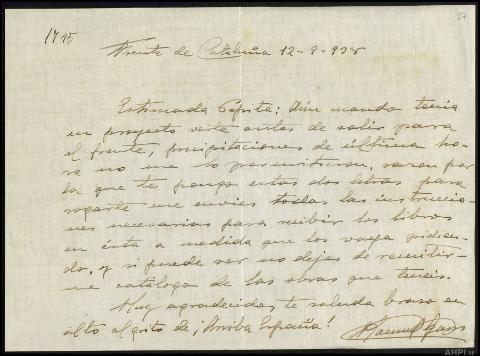 27
1795
Frente de Cataluña 12-9-938
Estimada Pepita: Aún cuando tenía
en proyecto verte antes de salir para
el frente, precipitaciones de última ho-
ra no me lo permitieron, razón por
la que te pongo estas dos letras para
rogarte me envies todas las instruccio-
nes necesarias para recibir los libros
en ésta a medida que los vaya pidien-
do, y si puede ser no dejes de remitir-
me catálogo de las obras que teneis.
Muy agradecido, te saluda brazo en
alto al grito de ¡Arriba España!
Manuel
AHPL